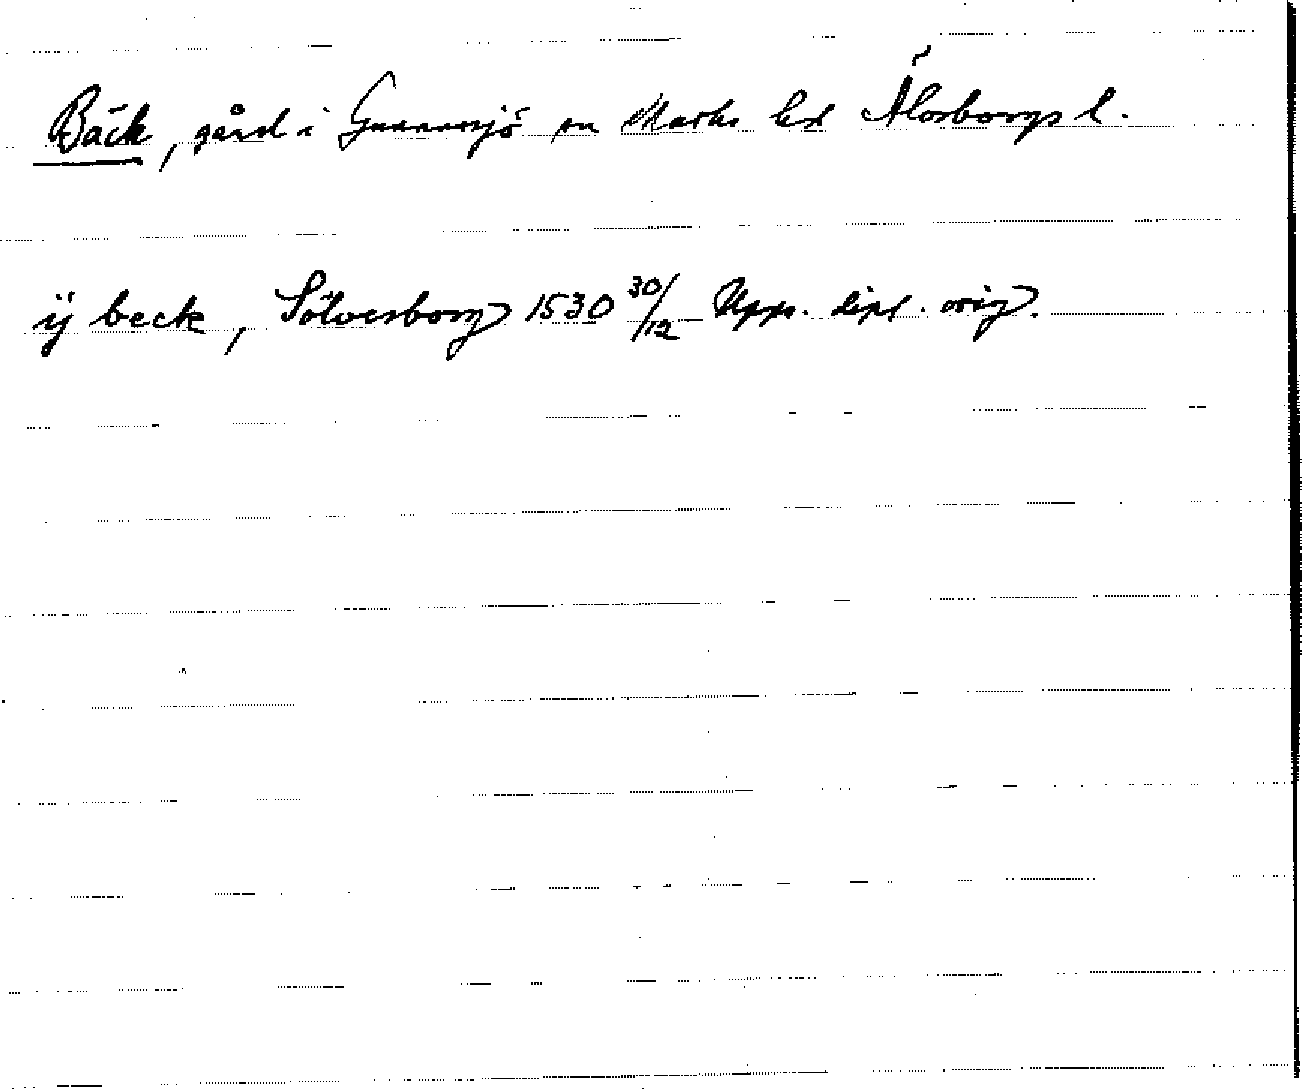 Bäck, gård i Gunnarsjö sn Marks hd Älvsborgs l.
ij beck, Sölvesborg 1530 30/12 Upps. dipl. orig.